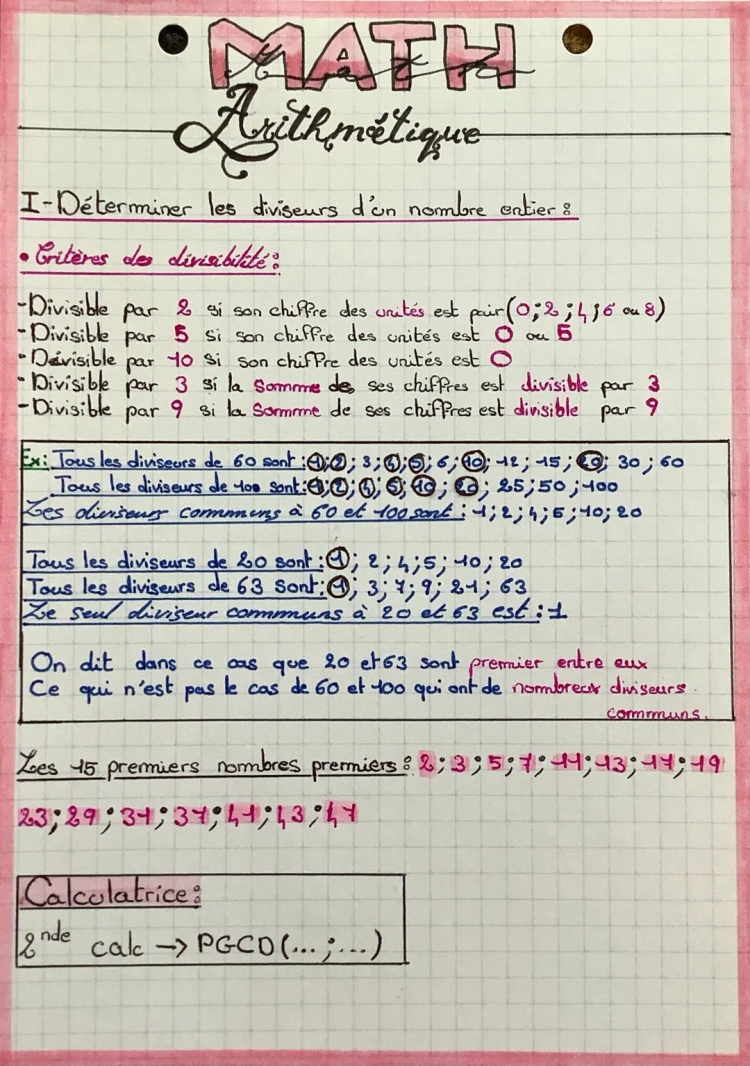 MATH
Arithmétique
I-Déterminer les diviseurs d'un nombre entier :
• Critères des divisibilité :
-Divisible par 2 si son chiffre des unités est pair (0;2;4;6 ou 8)
-Divisible par 5 si son chiffre des unités est 0 ou 5
-Divisible par 10 si son chiffre des unités est 0
-Divisible par 3 si la Somme des ses chiffres est divisible par 3
-Divisible par 9 si la Somme de ses chiffres est divisible par 9
Ex: Tous les diviseurs de 60 sont :1;2; 3;4;5; 6;10; 12; 15; 20; 30; 60
Tous les diviseurs de 100 sont:1;2;4;5;10; 20; 25;50;100
Les diviseurs communs à 60 et 100 sont : 1;2;4;5;10;20
Tous les diviseurs de 20 sont :1; 2;4;5; 10;20
Tous les diviseurs de 63 Sont:1; 3;7;9; 21; 63
Le seul diviseur communs à 20 et 63 est : 1
On dit dans ce cas que 20 et 63 sont premier entre eux
Ce qui n'est pas le cas de 60 et 100 qui ont de nombreux diviseurs
communs.
Les 15 premiers nombres premiers : 2;3;5;7;11;13;17;19
23;29;31;37;41;43;47
Calculatrice :
2nde calc → PGCD(...;...)